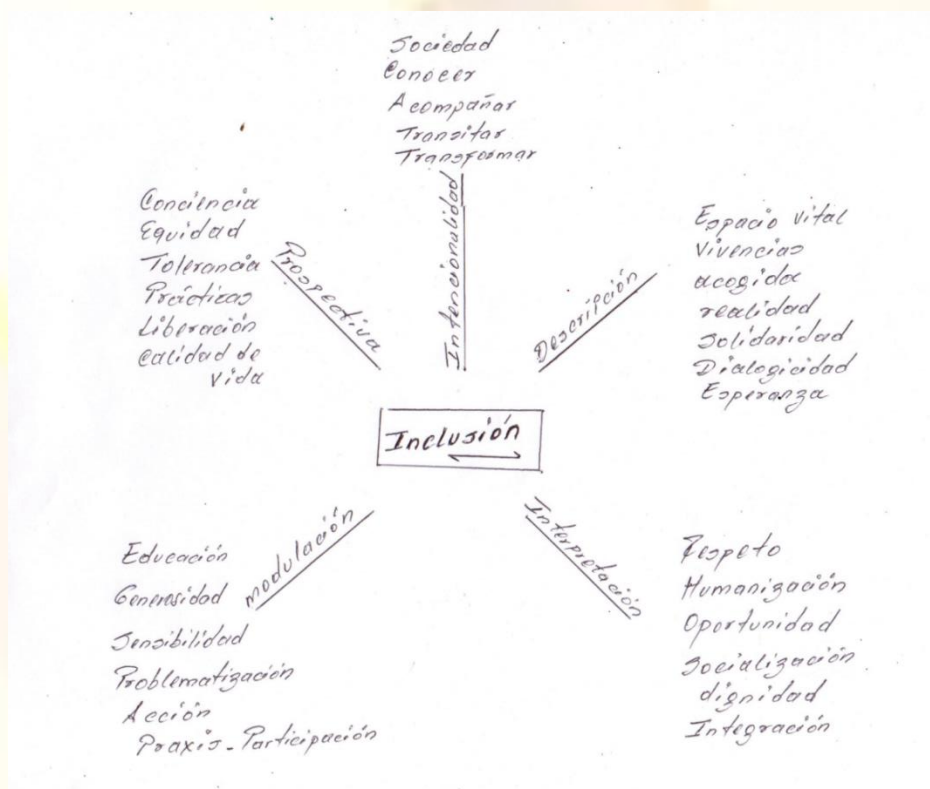 Sociedad
Conocer
Acompañar
Transitar
Transformar
Intencionalidad
Conciencia
Equidad
Tolerancia
Prácticas
Liberación
Calidad de
Vida
Prospectiva
Espacio vital
Vivencias
acogida
realidad
Solidaridad
Dialogicidad
Esperanza
Descripción
Inclusión
Educación
Generosidad
Sensibilidad
Problematización
Acción
Praxis - Participación
modulación
Interpretación
Respeto
Humanización
Oportunidad
Socialización
dignidad
Integración